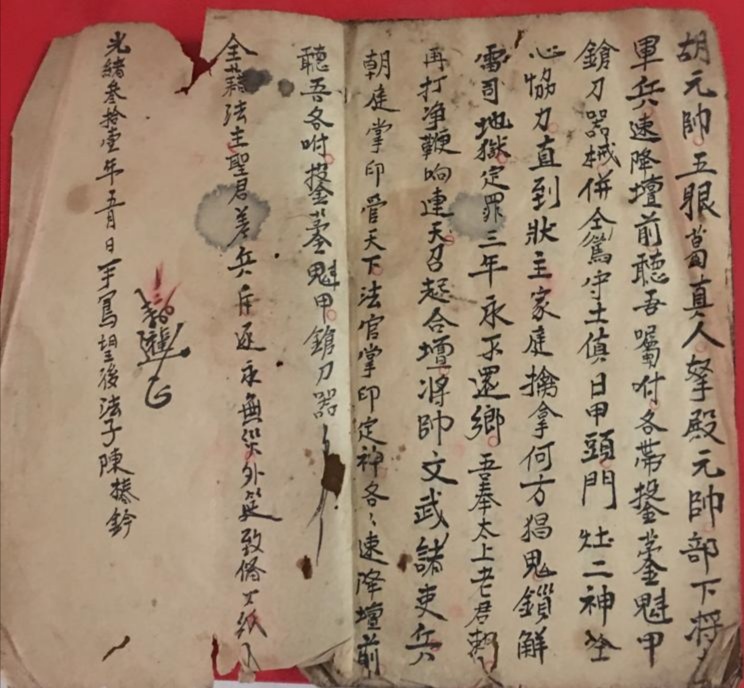 胡元帥五眼葛真人拏殿元帥部下將
軍兵速降壇前聽吾囑咐各帶鍪蓥魁甲
鎗刀器械併仝駕守土值日甲頭門灶二神仝
心恊力直到狀主家庭擒拿何方猖鬼鎖解
雷司地獄定罪三年永不還鄉吾奉太上老君勅
再打净鞭响連天召起合壇將帥文武諸吏兵
朝庭掌印管天下法官掌印定神各〻速降壇前
聽吾各咐鍪蓥魁甲鎗刀器
仝蒜法主聖君差兵斥逐永無
光緒叁拾壹年五月日手寫望後法子陳椿鈐